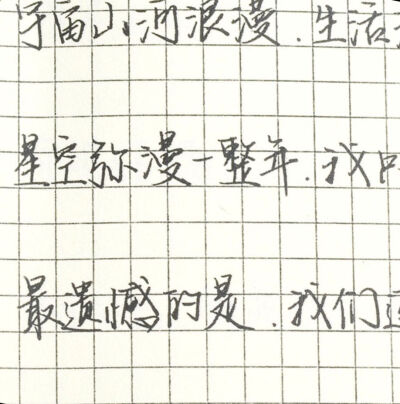 宇宙山河浪漫.生活
星空弥漫一整年.我
最遗憾的是.我们